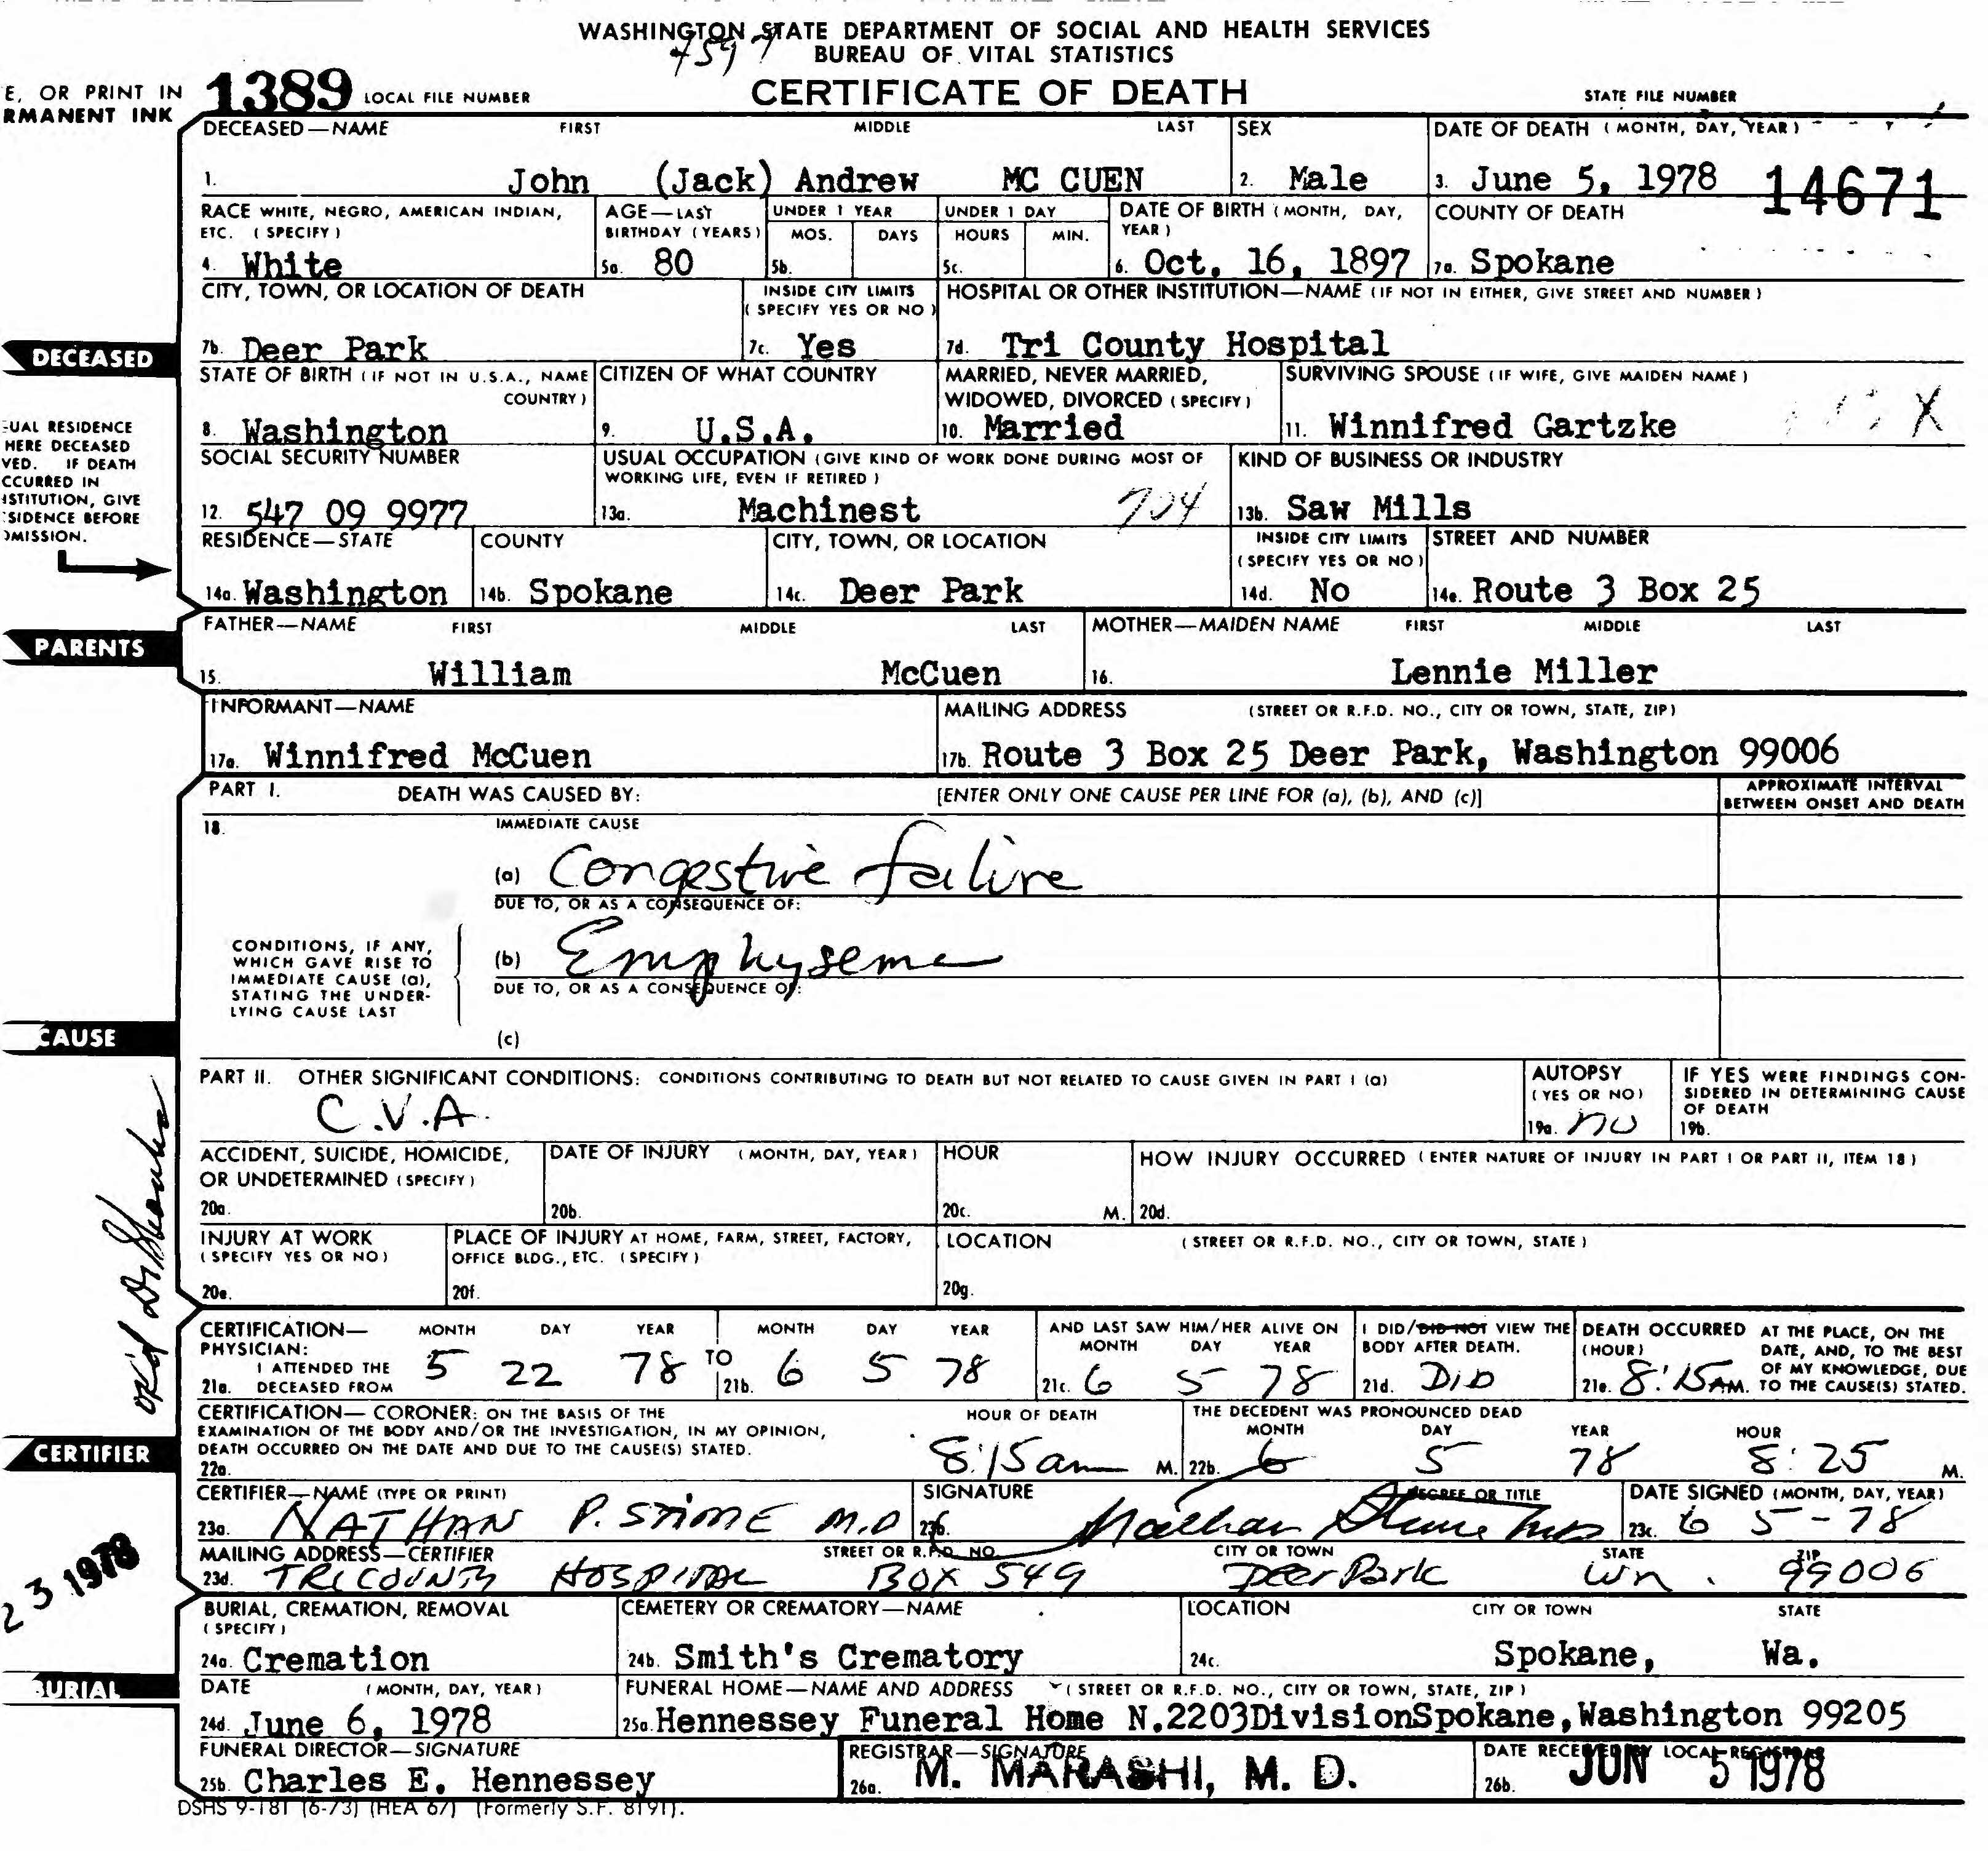 WASHINGTON STATE DEPARTMENT OF SOCIAL AND HEALTH SERVICES
BUREAU OF VITAL STATISTICS
E, OR PRINT IN
RMANENT INK
1389 LOCAL FILE NUMBER
CERTIFICATE OF DEATH
STATE FILE NUMBER
14671
DECEASED—NAME FIRST MIDDLE LAST
1. John (Jack) Andrew MC CUEN
SEX
2. Male
DATE OF DEATH (MONTH, DAY, YEAR)
3. June 5, 1978
RACE WHITE, NEGRO, AMERICAN INDIAN,
ETC. (SPECIFY)
4. White
AGE—LAST
BIRTHDAY (YEARS)
5a. 80
UNDER 1 YEAR
MOS. DAYS
5b.
UNDER 1 DAY
HOURS MIN.
5c.
DATE OF BIRTH (MONTH, DAY,
YEAR)
6. Oct. 16, 1897
COUNTY OF DEATH
7a. Spokane
CITY, TOWN, OR LOCATION OF DEATH
7b. Deer Park
INSIDE CITY LIMITS
(SPECIFY YES OR NO)
7c. Yes
HOSPITAL OR OTHER INSTITUTION—NAME (IF NOT IN EITHER, GIVE STREET AND NUMBER)
7d. Tri County Hospital
DECEASED
STATE OF BIRTH (IF NOT IN U.S.A., NAME
COUNTRY)
8. Washington
CITIZEN OF WHAT COUNTRY
9. U.S.A.
MARRIED, NEVER MARRIED,
WIDOWED, DIVORCED (SPECIFY)
10. Married
SURVIVING SPOUSE (IF WIFE, GIVE MAIDEN NAME)
11. Winnifred Gartzke
X
UAL RESIDENCE
HERE DECEASED
VED. IF DEATH
CCURRED IN
STITUTION, GIVE
SIDENCE BEFORE
MISSION.
SOCIAL SECURITY NUMBER
12. 547 09 9977
USUAL OCCUPATION (GIVE KIND OF WORK DONE DURING MOST OF
WORKING LIFE, EVEN IF RETIRED)
13a. Machinest
KIND OF BUSINESS OR INDUSTRY
13b. Saw Mills
RESIDENCE—STATE
14a. Washington
COUNTY
14b. Spokane
CITY, TOWN, OR LOCATION
14c. Deer Park
INSIDE CITY LIMITS
(SPECIFY YES OR NO)
14d. No
STREET AND NUMBER
14e. Route 3 Box 25
PARENTS
FATHER—NAME FIRST MIDDLE LAST
15. William McCuen
MOTHER—MAIDEN NAME FIRST MIDDLE LAST
16. Lennie Miller
INFORMANT—NAME
17a. Winnifred McCuen
MAILING ADDRESS (STREET OR R.F.D. NO., CITY OR TOWN, STATE, ZIP)
17b. Route 3 Box 25 Deer Park, Washington 99006
PART I. DEATH WAS CAUSED BY: [ENTER ONLY ONE CAUSE PER LINE FOR (a), (b), AND (c)]
APPROXIMATE INTERVAL
BETWEEN ONSET AND DEATH
18. IMMEDIATE CAUSE
(a) Congestive failure
DUE TO, OR AS A CONSEQUENCE OF:
CONDITIONS, IF ANY,
WHICH GAVE RISE TO
IMMEDIATE CAUSE (a),
STATING THE UNDER-
LYING CAUSE LAST
(b) Emphysema
DUE TO, OR AS A CONSEQUENCE OF:
(c)
CAUSE
PART II. OTHER SIGNIFICANT CONDITIONS: CONDITIONS CONTRIBUTING TO DEATH BUT NOT RELATED TO CAUSE GIVEN IN PART I (a)
C.V.A.
AUTOPSY
(YES OR NO)
19a. no
IF YES WERE FINDINGS CON-
SIDERED IN DETERMINING CAUSE
OF DEATH
19b.
ACCIDENT, SUICIDE, HOMICIDE,
OR UNDETERMINED (SPECIFY)
20a.
DATE OF INJURY (MONTH, DAY, YEAR)
20b.
HOUR
20c. M.
HOW INJURY OCCURRED (ENTER NATURE OF INJURY IN PART I OR PART II, ITEM 18)
20d.
INJURY AT WORK
(SPECIFY YES OR NO)
20e.
PLACE OF INJURY AT HOME, FARM, STREET, FACTORY,
OFFICE BLDG., ETC. (SPECIFY)
20f.
LOCATION (STREET OR R.F.D. NO., CITY OR TOWN, STATE)
20g.
ok'd Dr
CERTIFICATION— MONTH DAY YEAR MONTH DAY YEAR
PHYSICIAN:
I ATTENDED THE
DECEASED FROM
21a. 5 22 78 TO 21b. 6 5 78
AND LAST SAW HIM/HER ALIVE ON
MONTH DAY YEAR
21c. 6 5 78
I DID/DID NOT VIEW THE
BODY AFTER DEATH.
21d. DID
DEATH OCCURRED
(HOUR)
21e. 8:15 AM.
AT THE PLACE, ON THE
DATE, AND, TO THE BEST
OF MY KNOWLEDGE, DUE
TO THE CAUSE(S) STATED.
CERTIFIER
CERTIFICATION—CORONER: ON THE BASIS OF THE
EXAMINATION OF THE BODY AND/OR THE INVESTIGATION, IN MY OPINION,
DEATH OCCURRED ON THE DATE AND DUE TO THE CAUSE(S) STATED.
22a.
HOUR OF DEATH
8:15 am M.
THE DECEDENT WAS PRONOUNCED DEAD
MONTH DAY YEAR HOUR
22b. 6 5 78 8:25 M.
CERTIFIER—NAME (TYPE OR PRINT)
23a. NATHAN P. STIME M.D
SIGNATURE DEGREE OR TITLE
23b. Nathan Stime MD
DATE SIGNED (MONTH, DAY, YEAR)
23c. 6 5-78
MAILING ADDRESS—CERTIFIER STREET OR R.F.D. NO. CITY OR TOWN STATE ZIP
23d. TRICOUNTY HOSPITAL BOX 549 Deer Park Wn. 99006
23 1978
BURIAL, CREMATION, REMOVAL
(SPECIFY)
24a. Cremation
CEMETERY OR CREMATORY—NAME
24b. Smith's Crematory
LOCATION CITY OR TOWN STATE
24c. Spokane, Wa.
BURIAL
DATE (MONTH, DAY, YEAR)
24d. June 6, 1978
FUNERAL HOME—NAME AND ADDRESS (STREET OR R.F.D. NO., CITY OR TOWN, STATE, ZIP)
25a. Hennessey Funeral Home N.2203DivisionSpokane,Washington 99205
FUNERAL DIRECTOR—SIGNATURE
25b. Charles E. Hennessey
REGISTRAR—SIGNATURE
26a. M. MARASHI, M. D.
DATE RECEIVED BY LOCAL REGISTRAR
26b. JUN 5 1978
DSHS 9-181 (6-73) (HEA 67) (Formerly S.F. 8191).